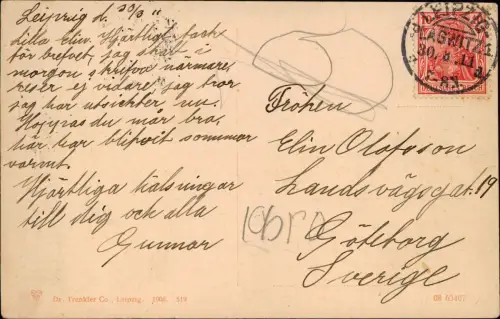 Leipzig d. 30/8 11
Lilla Elin. Hjärtligt tack
för brefvet, jag skall i
morgon skrifva närmare,
reser ej vidare, jag tror
jag har utsichter, nu.
Hoppas du mår bra,
här har blifvit sommar
varmt.
Hjärtliga hälsningar
till dig och alla
Gunnar
LEIPZIG
30.8.11
Fröken
Elin Olofsson
Landsvägsgat. 19
Göteborg
Sverige
Dr. Trenkler Co., Leipzig. 1906.